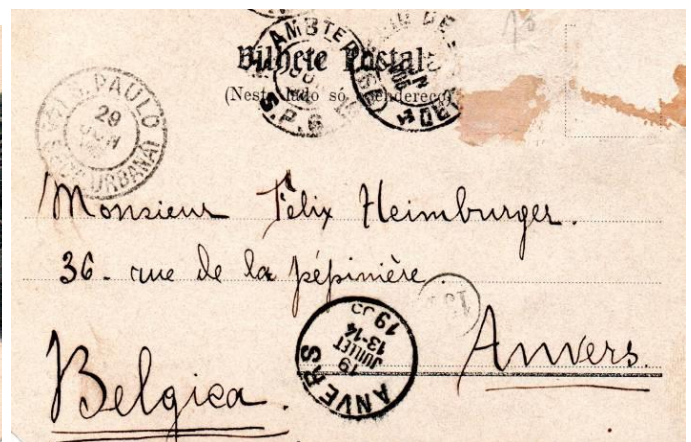 Bilhete Postal
(Neste lado só o endereço)
AMSTER
S.P.R
S. PAULO
29
JUN
URBANA
Monsieur Félix Heimburger.
36 - rue de la pépinière.
Anvers.
Belgica.
ANVERS
19
JUILLET
13-14
19